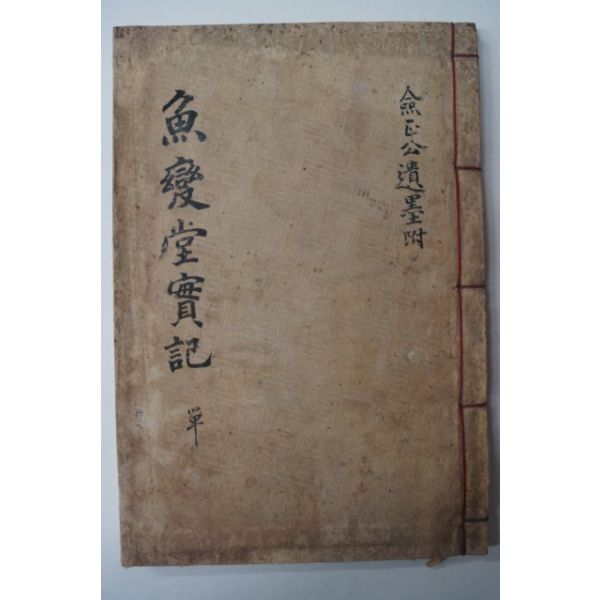 魚變堂實記 單
僉正公遺墨附